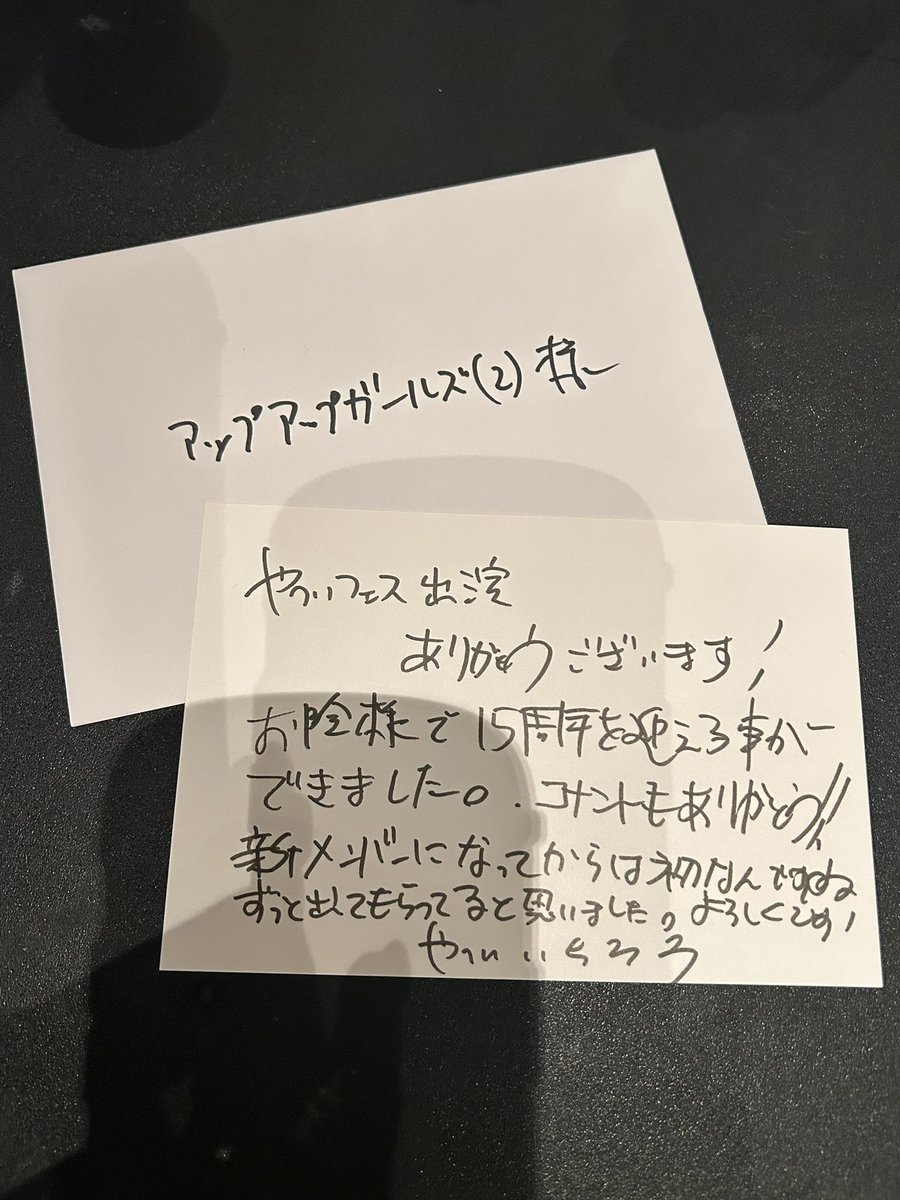 アップアップガールズ(2) 様
やついフェス 出演
ありがとうございます!
お陰様で15周年を迎える事が
できました。コメントもありがとう!!
新メンバーになってからは初なんですね
ずっと出てもらってると思いました。よろしくです!
やついいちろう